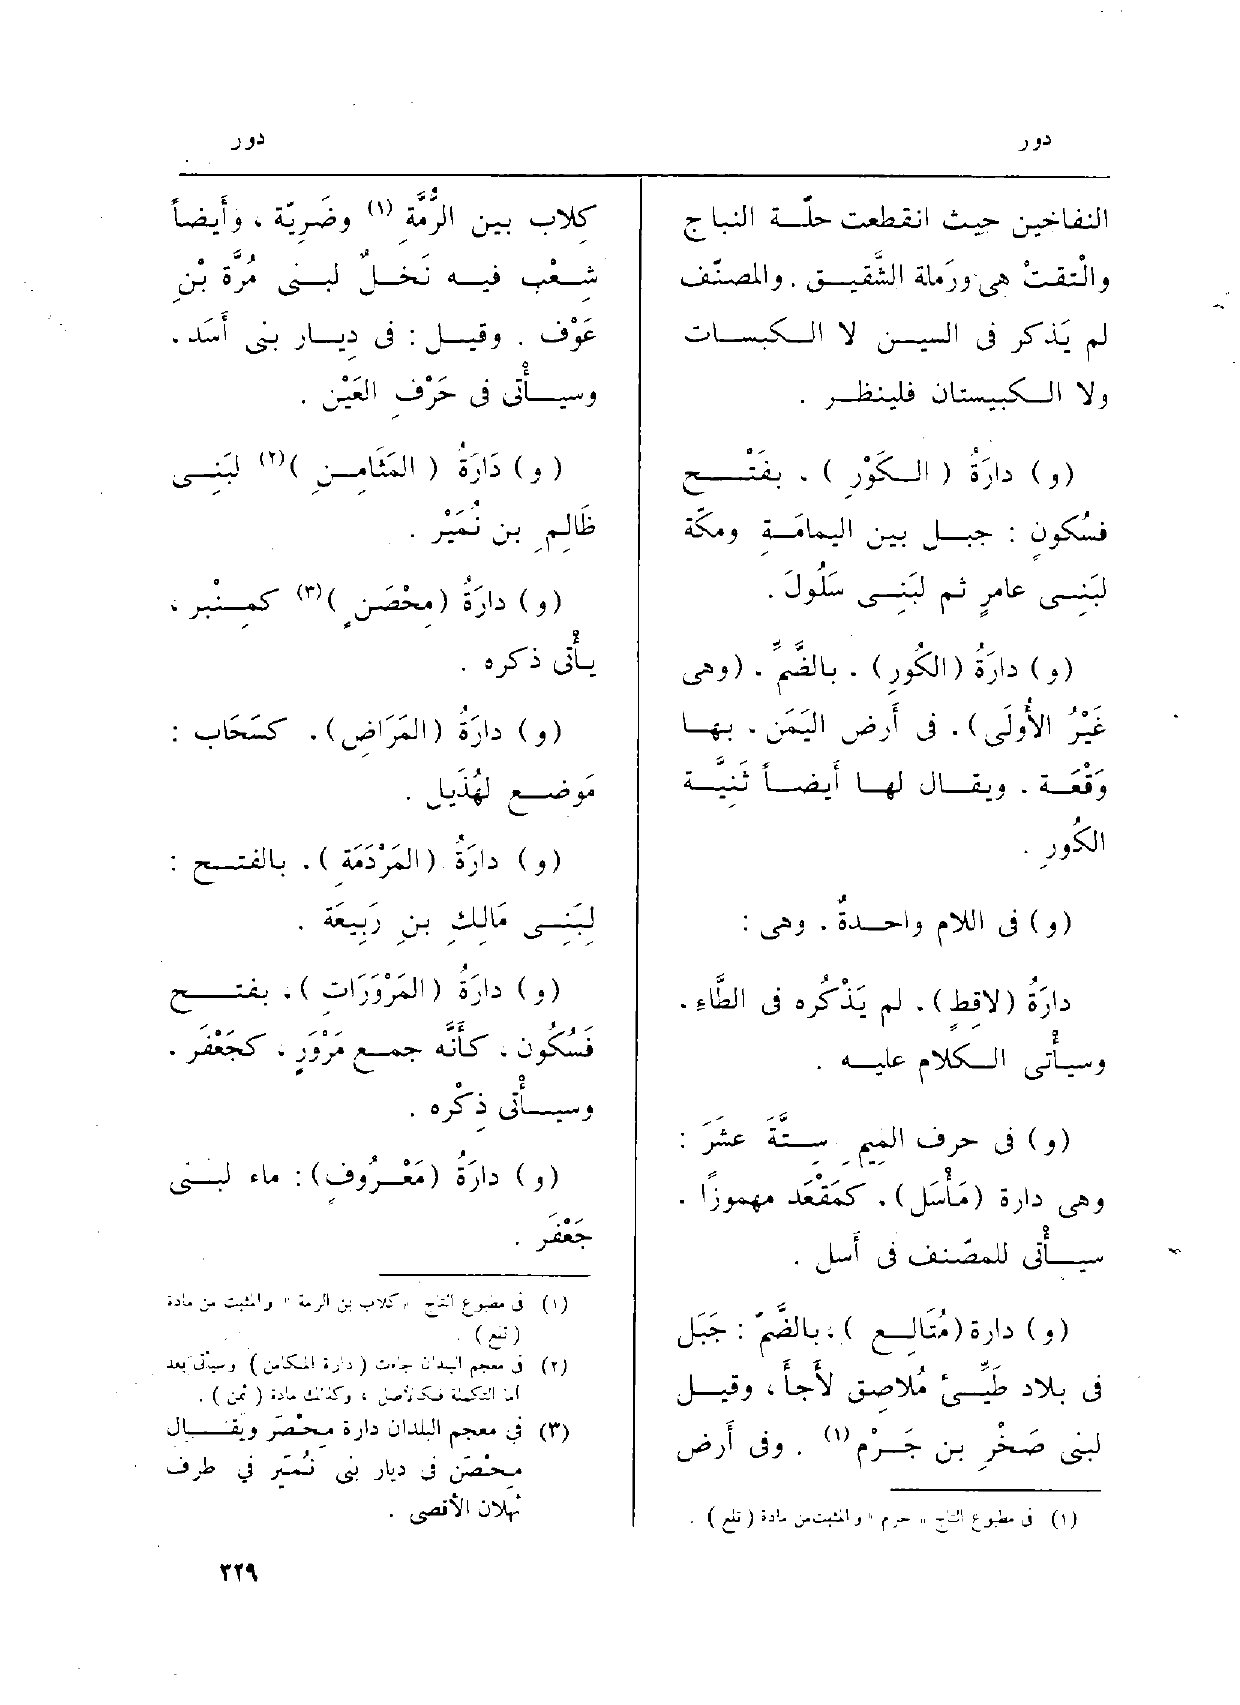 دور
دور
النفاخين حيث انقطعت حلّة النباج
والْتقتْ هى ورَملة الشَّقيق . والمصنّف
لم يَذكر فى السين لا الكبسات
ولا الكبيستان فلينظر .
(و) دارَةُ (الكَوْرِ) . بفَتْح
فسُكونٍ : جبل بين اليمامَةِ ومكّة
لبَنِى عامرٍ ثم لبَنِى سَلُولَ .
(و) دارَةُ (الكُورِ) . بالضَّمِّ . (وهى
غَيْرُ الأُولَى) . فى أَرض اليَمَنِ . بها
وَقْعَة . ويقال لها أَيضاً ثَنِيَّة
الكُورِ .
(و) فى اللام واحدةٌ . وهى :
دارَةُ (لاقِطٍ) . لم يَذْكُره فى الطَّاءِ .
وسيأْتى الكلام عليه .
(و) فى حرف الميمِ سِتَّةَ عشَرَ :
وهى دارة (مَأْسَل) . كمَقْعَد مهموزًا .
سيأْتى للمصّنف فى أَسل .
(و) دارة (مُتَالِع) ، بالضَّمّ : جَبَل
فى بلاد طَيِّئ مُلاصِق لأَجأَ ، وقيل
لبنى صَخْرِ بن جَرْم (١) . وفى أَرض
(١) فى مطبوع التاج « حرم » والمثبت من مادة (تلع) .
كِلاب بين الرُّمَّةِ (١) وضَرِيّة ، وأَيضاً
شِعْب فيه نَخلٌ لبنى مُرَّة بْنِ
عَوْف . وقيل : فى دِيار بنى أَسَد .
وسيأْتى فى حَرْفِ العَيْنِ .
(و) دَارَةُ (المَثَامِنِ) (٢) لبَنِى
ظَالِمِ بن نُمَيْر .
(و) دارَةُ (مِحْصَنٍ) (٣) كمِنْبر ،
يأْتى ذكره .
(و) دارَةُ (المَرَاضِ) . كسَحَاب :
مَوضع لهُذَيل .
(و) دارَةُ (المَرْدَمَةِ) . بالفتح :
لبَنِى مَالِكِ بنِ رَبِيعَة .
(و) دارَةُ (المَرْوَرَاتِ) . بفتح
فَسُكُون ، كأَنَّه جمع مَرْوَرٍ ، كجَعْفَر .
وسيأْتى ذِكْره .
(و) دارَةُ (مَعْرُوفٍ) : ماء لبنى
جَعْفَر .
(١) فى مطبوع التاج « كلاب بن الرمة » والمثبت من مادة
(تلع) .
(٢) فى معجم البلدان جاءت (دارة المكامن) وسيأتى بعد
أما التكملة فكالأصل ، وكذلك مادة (ثمن) .
(٣) فى معجم البلدان دارة مِحْصَر ويقال
مِحْصَن فى ديار بنى نُمَيْر في طرف
ثهلان الأقصى .
٣٢٩